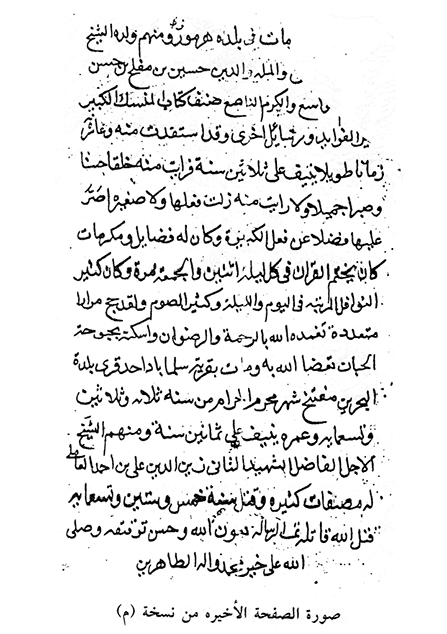 مات في بلده هرموز ومنهم ولده الشيخ
والملة والدين حسين بن مفلح بن حسن
واسع والكرم الناصع صنف كتاب المنسك الكبير
الفوايد ورسايل اخرى وقد استفدت منه وعاشرته
زمانا طويلا ينيف على ثلاثين سنة فرايت منه خلقا حسنا
وصبرا جميلا ولا رايت منه زلة فعلها ولا صغيرة اصر
عليها فضلا عن فعل الكبيرة وكان له فضايل ومكرمات
كان يختم القران في كل ليلة اثنين والجمعة مرة وكان كثير
النوافل المرتبة في اليوم والليلة وكثير الصوم ولقد حج مرارا
متعددة تغمده الله بالرحمة والرضوان واسكنه بحبوحة
الجنان تفضا الله به ومات بقرية سلماباد احد قرى بلدة
البحرين مفتتح شهر محرم الحرام من سنة ثلاث وثلاثين
وتسعمايه وعمره ينيف على ثمانين سنة ومنهم الشيخ
الاجل الفاضل الشهيد الثاني زين الدين علي بن احمد العاملي
له مصنفات كثيره وقتل سنة خمس وستين وتسعمايه
قتل الله قاتله تمت الرسالة بعون الله وحسن توفيقه وصلى
الله على خير محمد واله الطاهرين
صورة الصفحة الأخيره من نسخة (م)